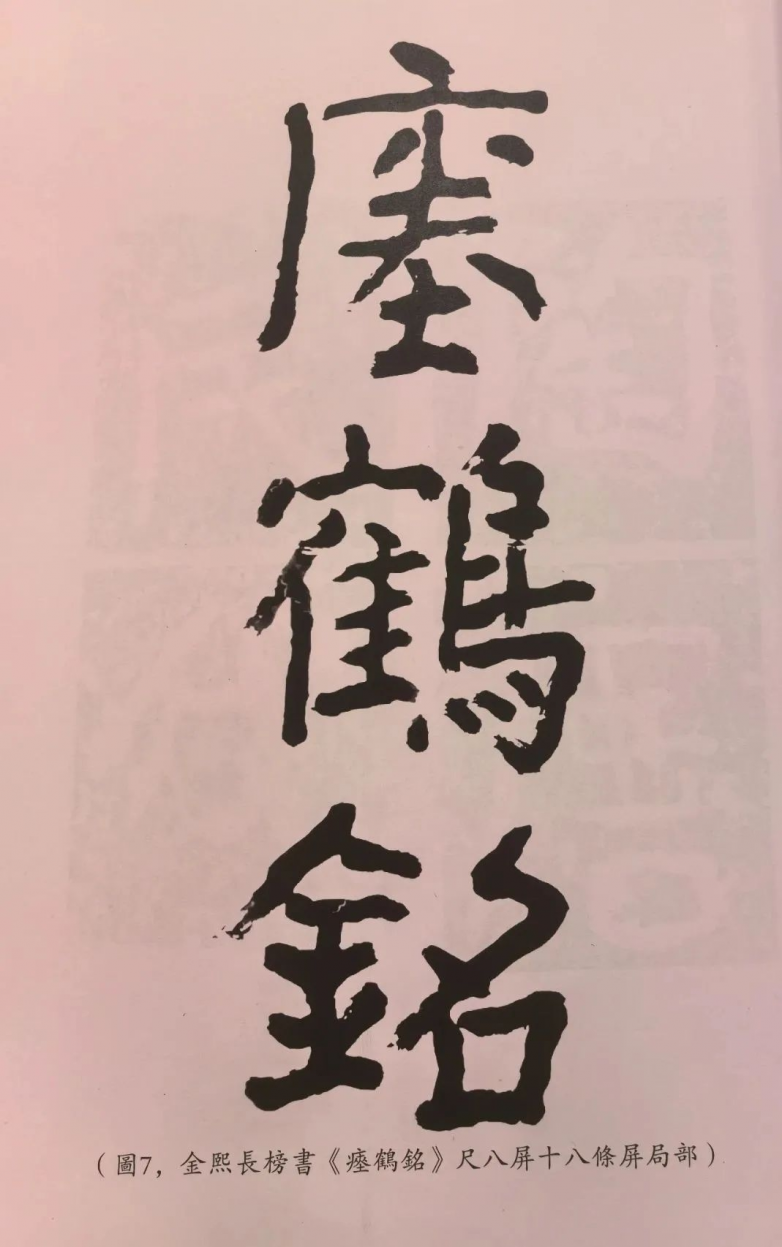 瘞鶴銘
（圖7，金熙長榜書《瘞鶴銘》尺八屏十八條屏局部）